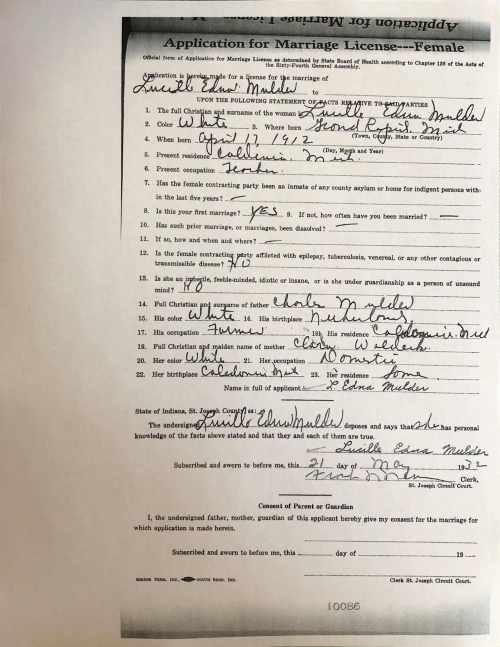 Application for Marriage License
Application for Marriage License---Female
Official form of Application for Marriage License as determined by State Board of Health according to Chapter 126 of the Acts of
the Sixty-Fourth General Assembly.
Application is hereby made for a license for the marriage of
Lucille Edna Mulder to
UPON THE FOLLOWING STATEMENT OF FACTS RELATIVE TO SAID PARTIES
1. The full Christian and surname of the woman Lucille Edna Mulder
2. Color White 3. Where born Grand Rapids, Mich
(Town, County, State or Country)
4. When born April 17, 1912
(Day, Month and Year)
5. Present residence Caledonia, Mich.
6. Present occupation Teacher.
7. Has the female contracting party been an inmate of any county asylum or home for indigent persons with-
in the last five years? —
8. Is this your first marriage? YES 9. If not, how often have you been married? —
10. Has such prior marriage, or marriages, been dissolved? —
11. If so, how and when and where? —
12. Is the female contracting party afflicted with epilepsy, tuberculosis, venereal, or any other contagious or
transmissible disease? NO
13. Is she an imbecile, feeble-minded, idiotic or insane, or is she under guardianship as a person of unsound
mind? NO
14. Full Christian and surname of father Charles Mulder
15. His color White 16. His birthplace
17. His occupation Farmer 18. His residence
19. Full Christian and maiden name of mother
20. Her color White 21. Her occupation Domestic
22. Her birthplace Caledonia Mich 23. Her residence Same
Name in full of applicant L. Edna Mulder
State of Indiana, St. Joseph County, ss:
The undersigned Lucille Edna Mulder deposes and says that she has personal
knowledge of the facts above stated and that they and each of them are true.
Lucille Edna Mulder
Subscribed and sworn to before me, this 21 day of May 1932
Clerk,
St. Joseph Circuit Court.
Consent of Parent or Guardian
I, the undersigned father, mother, guardian of this applicant hereby give my consent for the marriage for
which application is made herein.
Subscribed and sworn to before me, this day of 19
SOUTH BEND, IND.
Clerk St. Joseph Circuit Court.
10086